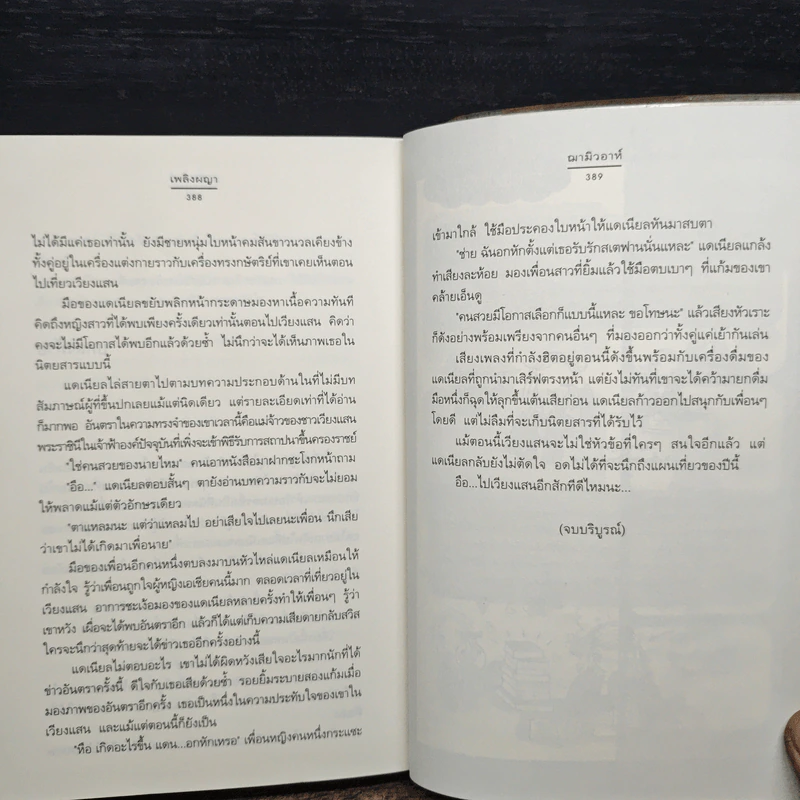 เพลิงผญา
388
ไม่ได้มีแค่เธอเท่านั้น ยังมีชายหนุ่มใบหน้าคมสันขาวนวลเคียงข้าง
ทั้งคู่อยู่ในเครื่องแต่งกายราวกับเครื่องทรงกษัตริย์ที่เขาเคยเห็นตอน
ไปเที่ยวเวียงแสน
มือของแดเนียลขยับพลิกหน้ากระดาษมองหาเนื้อความทันที
คิดถึงหญิงสาวที่ได้พบเพียงครั้งเดียวเท่านั้นตอนไปเวียงแสน คิดว่า
คงจะไม่มีโอกาสได้พบอีกแล้วด้วยซ้ำ ไม่นึกว่าจะได้เห็นภาพเธอใน
นิตยสารแบบนี้
แดเนียลไล่สายตาไปตามบทความประกอบด้านในที่ไม่มีบท
สัมภาษณ์ผู้ที่ขึ้นปกเลยแม้แต่นิดเดียว แต่รายละเอียดเท่าที่ได้อ่าน
ก็มากพอ อันตราในความทรงจำของเขาเวลานี้คือแม่จ้าวของชาวเวียงแสน
พระราชินีในเจ้าฟ้าองค์ปัจจุบันที่เพิ่งจะเข้าพิธีรับการสถาปนาขึ้นครองราชย์
"ใช่คนสวยของนายไหม" คนเอาหนังสือมาฝากชะโงกหน้าถาม
"อือ..." แดเนียลตอบสั้นๆ ตายังอ่านบทความราวกับจะไม่ยอม
ให้พลาดแม้แต่ตัวอักษรเดียว
"ตาแหลมนะ แต่ว่าแหลมไป อย่าเสียใจไปเลยนะเพื่อน นึกเสีย
ว่าเขาไม่ได้เกิดมาเพื่อนาย"
มือของเพื่อนอีกคนหนึ่งตบลงมาบนหัวไหล่แดเนียลเหมือนให้
กำลังใจ รู้ว่าเพื่อนถูกใจผู้หญิงเอเชียคนนี้มาก ตลอดเวลาที่เที่ยวอยู่ใน
เวียงแสน อาการชะเง้อมองของแดเนียลหลายครั้งทำให้เพื่อนๆ รู้ว่า
เขาหวัง เผื่อจะได้พบอันตราอีก แล้วก็ได้แต่เก็บความเสียดายกลับสวิส
ใครจะนึกว่าสุดท้ายจะได้ข่าวเธออีกครั้งอย่างนี้
แดเนียลไม่ตอบอะไร เขาไม่ได้ผิดหวังเสียใจอะไรมากนักที่ได้
ข่าวอันตราครั้งนี้ ดีใจกับเธอเสียด้วยซ้ำ รอยยิ้มระบายสองแก้มเมื่อ
มองภาพของอันตราอีกครั้ง เธอเป็นหนึ่งในความประทับใจของเขาใน
เวียงแสน และแม้แต่ตอนนี้ก็ยังเป็น
"หือ เกิดอะไรขึ้น แดน...อกหักเหรอ" เพื่อนหญิงคนหนึ่งกระแซะ
ฌามิวอาห์
389
เข้ามาใกล้ ใช้มือประคองใบหน้าให้แดเนียลหันมาสบตา
"ช่าย ฉันอกหักตั้งแต่เธอรับรักสเตฟานนั่นแหละ" แดเนียลแกล้ง
ทำเสียงละห้อย มองเพื่อนสาวที่ยิ้มแล้วใช้มือตบเบาๆ ที่แก้มของเขา
คล้ายเอ็นดู
"คนสวยมีโอกาสเลือกก็แบบนี้แหละ ขอโทษนะ" แล้วเสียงหัวเราะ
ก็ดังอย่างพร้อมเพรียงจากคนอื่นๆ ที่มองออกว่าทั้งคู่แค่เย้ากันเล่น
เสียงเพลงที่กำลังฮิตอยู่ตอนนี้ดังขึ้นพร้อมกับเครื่องดื่มของ
แดเนียลที่ถูกนำมาเสิร์ฟตรงหน้า แต่ยังไม่ทันที่เขาจะได้คว้ามายกดื่ม
มือหนึ่งก็ฉุดให้ลุกขึ้นเต้นเสียก่อน แดเนียลก้าวออกไปสนุกกับเพื่อนๆ
โดยดี แต่ไม่ลืมที่จะเก็บนิตยสารที่ได้รับไว้
แม้ตอนนี้เวียงแสนจะไม่ใช่หัวข้อที่ใครๆ สนใจอีกแล้ว แต่
แดเนียลกลับยังไม่ตัดใจ อดไม่ได้ที่จะนึกถึงแผนเที่ยวของปีนี้
อือ...ไปเวียงแสนอีกสักทีดีไหมนะ...
(จบบริบูรณ์)